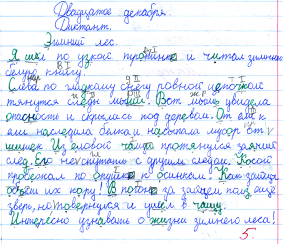 Двадцатое декабря.
Диктант.
Зимний лес.
Я шёл по узкой тропинке и читал зимнюю
белую книгу.
Слева по гладкому снегу ровной цепочкой
тянутся следы мыши. Вот мышь увидела
опасность и скрылась под деревом. От ели к
ели наследила белка и насыпала мусор от
шишек. Из еловой чащи протянулся заячий
след. Его не спутать с другим следом. Косой
пробежал по опушке к осинкам. Как зайцы
объели их кору! В погоне за зайцем полз ещё
зверь, но повернулся и ушёл в чащу.
Интересно узнавать о жизни зимнего леса!
5.